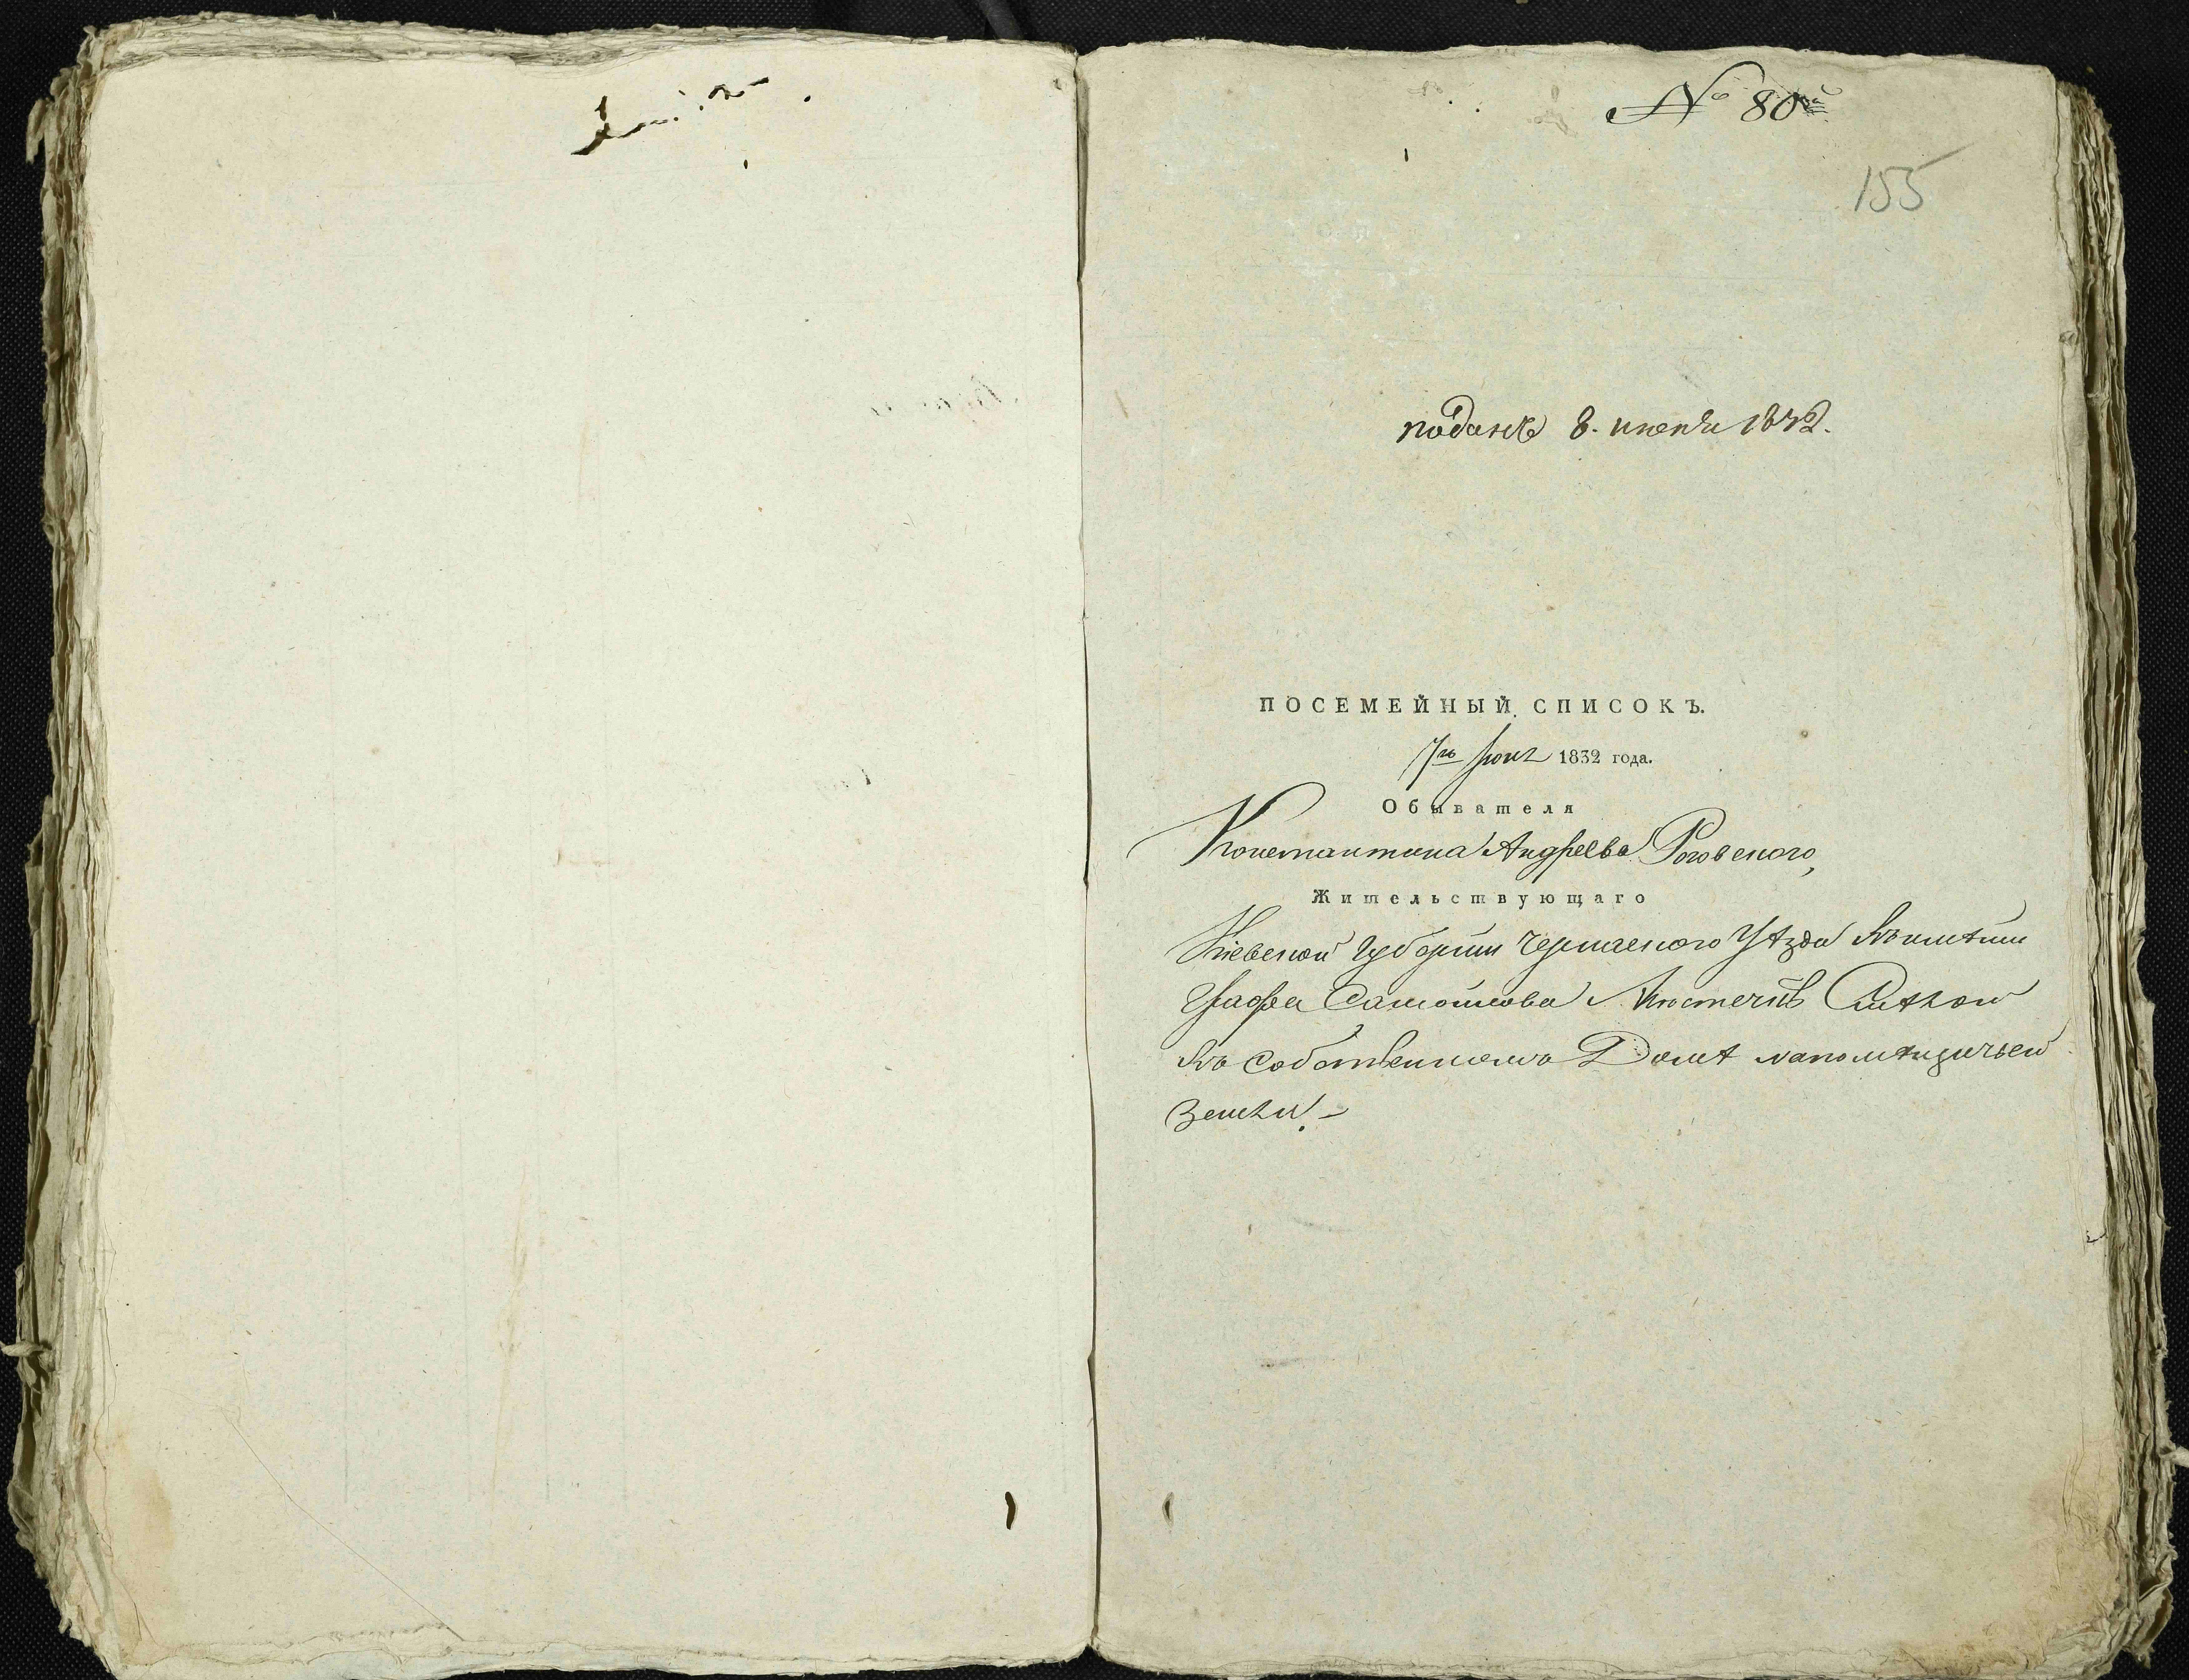 № 80й
155
поданъ 8. июня 1832.
ПОСЕМЕЙНЫЙ СПИСОКЪ.
7го Іюня 1832 года.
Обывателя
Константина Андреева Роговского,
Жительствующаго
Кіевской Губерніи Черкаского Уѣзда Въимѣніи
Графа Самойлова Мѣстечкѣ Смѣлой
Въ собственномъ Домѣ напомѣщичьей
Земли. –